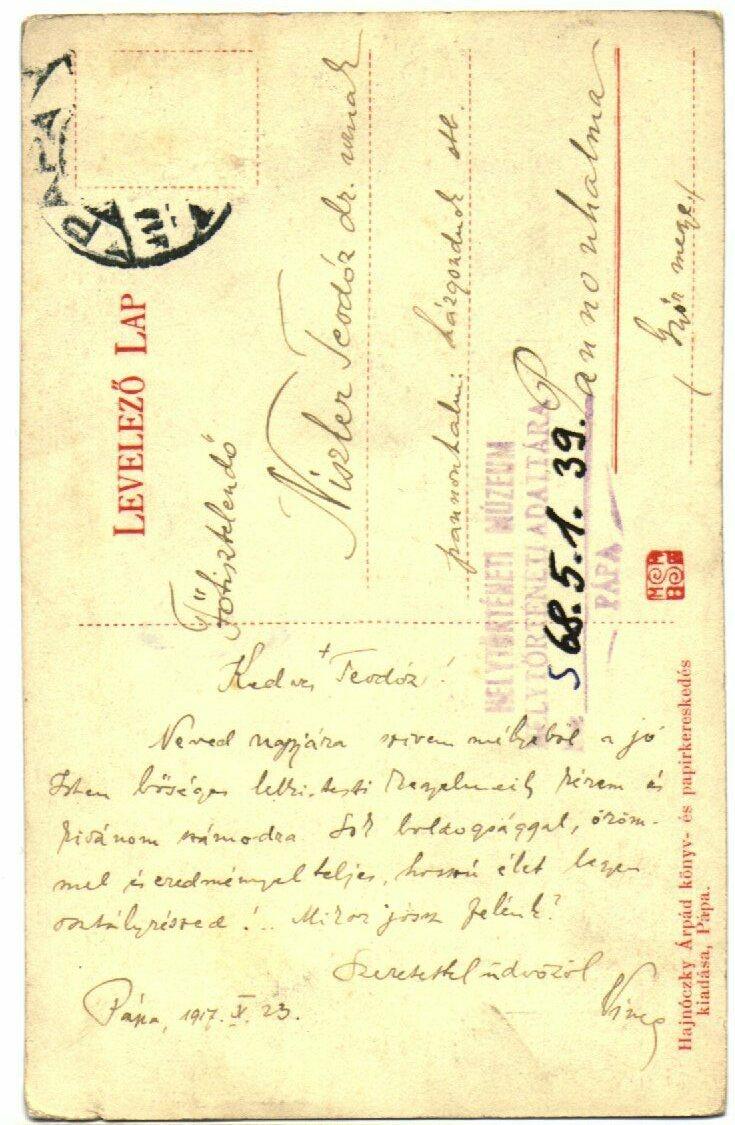 LEVELEZŐ LAP
PÁPA
Főtisztelendő
Niszler Teodóz dr. urnak
pannonhalmi házgondnok stb.
Pannonhalma
(Győr megye)
HELYTÖRTÉNETI MÚZEUM
HELYTÖRTÉNETI ADATTÁRA
S 68.5.1. 39.
PÁPA
Kedves Teodóz!
Neved napjára szivem mélyéből a jó
Isten bőséges lelki-testi kegyelmeit kérem és
kivánom számodra. Sok boldogsággal, öröm-
mel és eredménnyel teljes, hosszú élet legyen
osztályrészed!.. Mikor jössz felénk?
Szeretettel üdvözöl
Pápa, 1917. X. 23.
Hajnóczky Árpád könyv- és papirkereskedés
kiadása, Pápa.